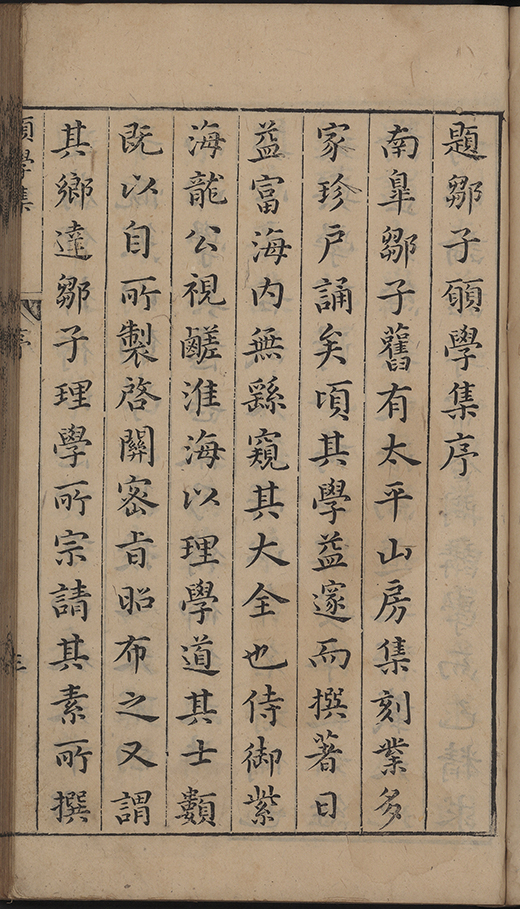 題鄒子願學集序
南臯鄒子舊有太平山房集刻業多
家珍戶誦矣頃其學益邃而撰著日
益富海内無繇窺其大全也侍御紫
海龍公視鹺淮海以理學道其士類
既以自所製啓關宻旨昭布之又謂
其鄉達鄒子理學所宗請其素所撰
願學集
序